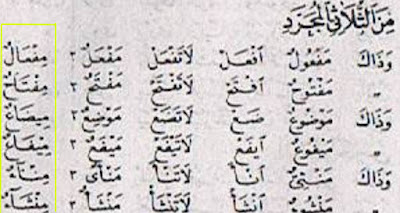 مِنَ الثُّلَاثِي الْمُجَرَّدِ
وَذَاكَ مَفْعُولٌ اِفْعَلْ لَاتَفْعَلْ مَفْعَلٌ ٣ مِفْعَالٌ
» مَفْتُوحٌ اِفْتَحْ لَاتَفْتَحْ مَفْتَحٌ ٣ مِفْتَاحٌ
وَذَاكَ مَوْضُوعٌ ضَعْ لَاتَضَعْ مَوْضِعٌ ٣ مِيضَاعٌ
» مَيْفُوعٌ اِيفَعْ لَاتَيْفَعْ مَيْفَعٌ ٣ مِيفَاعٌ
وَذَاكَ لَاتَنْأَ مَنْأًى ٣ مِنْآءٌ
» مَنْشُوءٌ اِنْشَأْ لَاتَنْشَأْ مَنْشَأٌ ٣ مِنْشَاءٌ